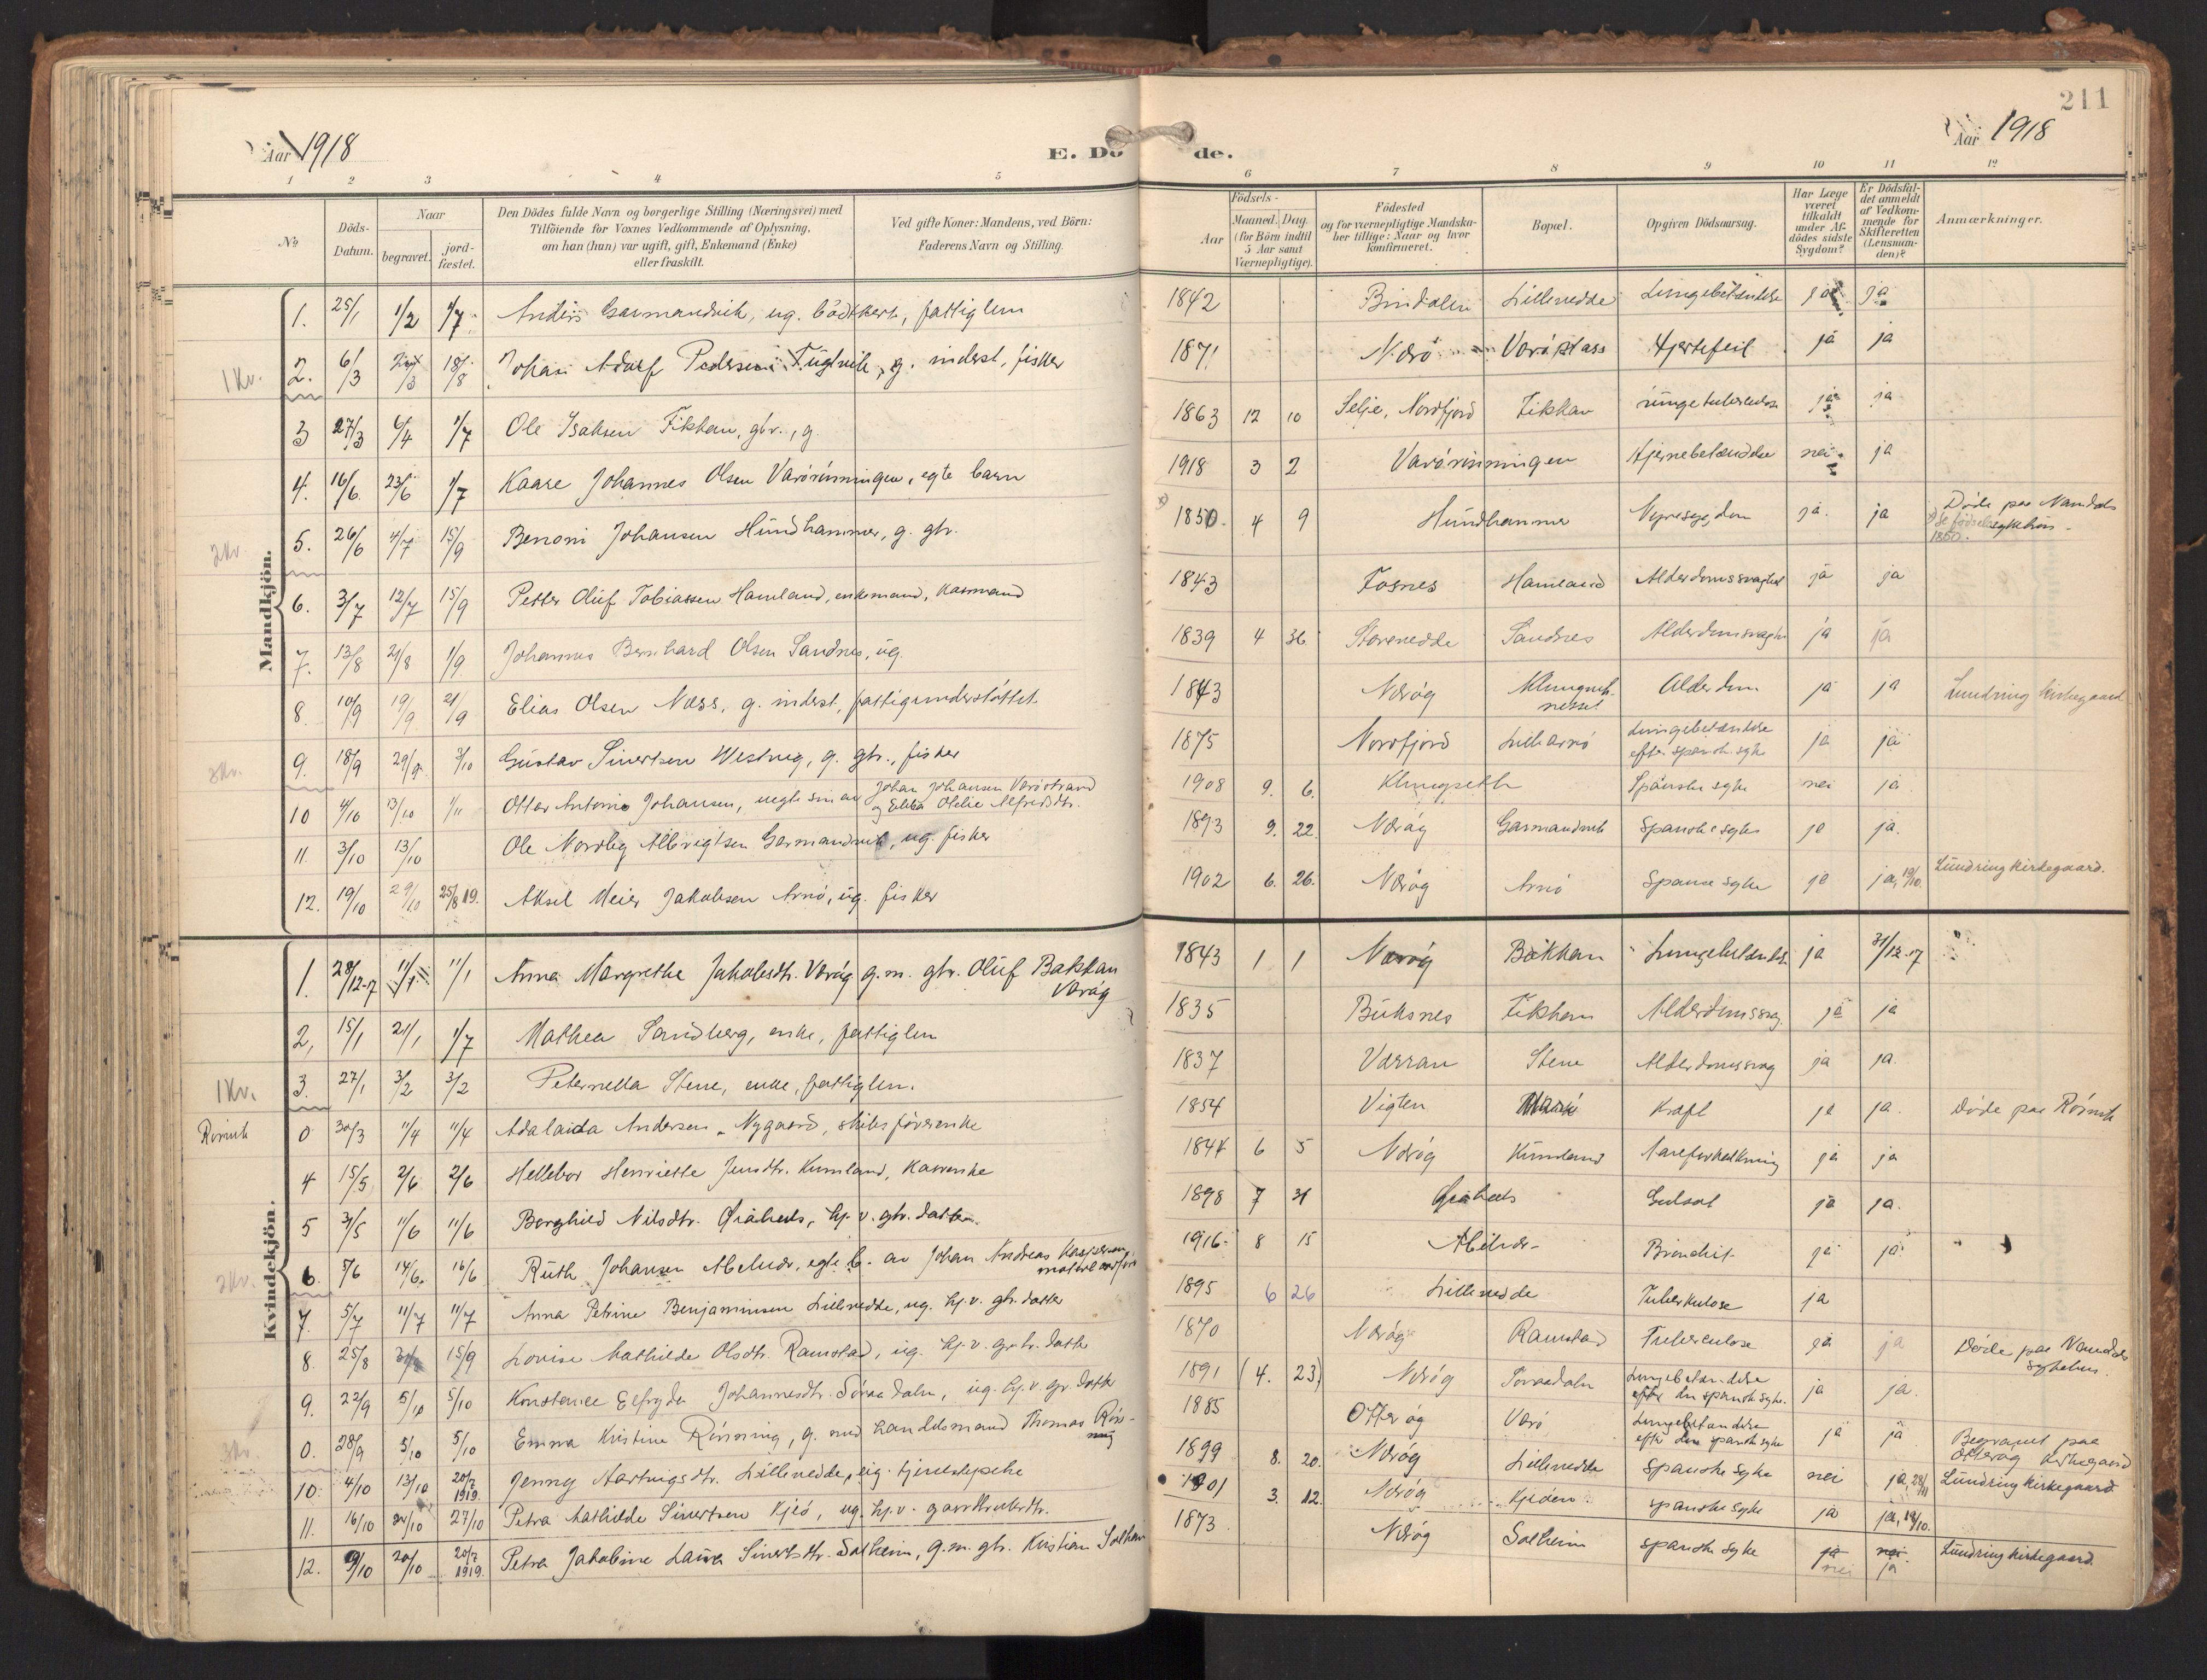 211
Aar 1918
E. Dö de.
Aar 1918
1 2 3 4 5 6 7 8 9 10 11 12
No
Döds-Datum.
Naar
begravet.
jord-fæstet.
Den Dödes fulde Navn og borgerlige Stilling (Næringsvei) med
Tilföiende for Voxnes Vedkommende af Oplysning,
om han (hun) var ugift, gift, Enkemand (Enke)
eller fraskilt.
Ved gifte Koner: Mandens, ved Börn:
Faderens Navn og Stilling.
Födsels-
Aar
Maaned. Dag.
(for Börn indtil
5 Aar samt
Værnepligtige).
Födested
og for værnepligtige Mandska-
ber tillige: Naar og hvor
konfirmeret.
Bopæl.
Opgiven Dödsaarsag.
Har Læge
været
tilkaldt
under Af-
dödes sidste
Sygdom?
Er Dödsfal-
det anmeldt
af Vedkom-
mende for
Skifteretten
(Lensman-
den)?
Anmærkninger.
Mandkjön.
1. 25/1 1/2 1/7 Anders Garmandvik, ug. bödtkert, fattiglem 1842 Bindalen Lillevedde Lungebetændelse ja ja
1 Kv. 2. 6/3 18/8 Johan Adolf Pedersen Fuglvik, g. inderst, fisker 1871 Nærö Værö plass Hjertefeil ja ja
3 27/3 6/4 1/7 Ole Isaksen Fikkan, gbr., g. 1863 12 10 Selje, Nordfjord Fikkan ja ja
4. 16/6 23/6 1/7 Kaare Johannes Olsen Varörönningen, egte barn 1918 3 2 Varörönningen Hjernebetændelse nei ja
2 Kv 5. 26/6 4/7 15/9 Benoni Johansen Hundhammer, g. gbr. 1850. 4 9 Hundhammer Nyresygdom ja. ja Døde paa Namdals sykehus -
6. 3/7 12/7 15/9 Petter Oluf Tobiassen Hamland, enkemand, kaarmand 1843 Fosnes Hamland Alderdomssvaghet ja ja
7. 13/8 21/8 1/9 Johannes Bernhard Olsen Sandnes, ug. 1839 4 Storevedde Sandnes ja ja
8 10/9 19/9 21/9 Elias Olsen Næss, g. inderst, fattigunderstöttet 1843 Nærög Alderdom ja ja Lundring kirkegaard
3 Kv. 9. 18/9 29/9 3/10 Gustav Sivertsen Westvig, g. gbr., fisker 1875 Nordfjord Lillearnö Lungebetændelse efter spansk syke ja ja
10 4/10 13/10 1/11 Otter Antonio Johansen, uegte søn av Johan Johansen Værøstrand
og Ebba Otelie Alfredsdtr. 1908 9. 6. Klungseth Spanske syke nei ja
11. 3/10 13/10 Ole Nordbeg Albrigtsen Garmandvik, ug. fisker 1893 9. 22. Nærög Garmandvik Spanske syke ja ja.
12. 19/10 29/10 25/8 19. Aksel Meier Jakobsen Arnö, ug. fisker 1902 6. 26. Nærög Arnö Spanske syke ja ja, 19/10. Lundring kirkegaard.
Kvindekjön.
1. 28/12-17 11/1 11/1 Anna Margrethe Jakobsdtr. Værög g.m. gbr. Oluf Bakkan
Værög 1843 1 1 Nærög Bakkan Lungebetændelse ja 31/12-17
2, 15/1 21/1 1/7 Mathea Sandberg, enke, fattiglem 1835 Buksnes Fikkan Alderdomssvag. ja ja
1 Kv. 3. 27/1 3/2 3/2 Peternella Stene, enke, fattiglem. 1837 Værran Stene Alderdomssvag ja ja.
Rörvik 0 30/3 11/4 11/4 Adalaida Andersen Nygaard, skibsförerenke 1854 Vigten Kræft ja ja. Døde paa Rörvik
4 15/5 2/6 2/6 Hellebor Henriette Jensdtr. Kumland, kaarenke 6 5 Nærög Kumland Aareforkalkning ja ja
5 31/5 11/6 11/6 Borghild Nilsdtr. Graaheds, hj. v. gbr. datter. 1898 7 31 Graaheds Gulsot ja ja.
2 Kv. 6. 5/6 14/6. 16/6 Ruth Johansen Abelvær, egte b. av Johan Andreas Kaspersen, 1916 8 15 Abelvær Bronchit ja ja
7. 5/7 11/7 11/7 Anna Petrine Benjaminsen Lillevedde, ug. hj. v. gbr. datter 1895 6 26 Lillevedde Tuberkulose ja
8. 25/8 15/9 Lovise Mathilde Olsdtr. Ramstad, ug. hj. v. gbr. datter 1870 Nærög Ramstad Tuberculose ja ja Døde paa Namdals
sykehus.
9. 22/9 5/10 5/10 Konstance Elfryda Johannesdtr. Söraadaln, ug. hj. v. gbr. datter 1891 (4. 23) Nærög Soraadaln Lungebetændelse
efter den spanske syke. ja ja.
3 Kv. 0. 28/9 5/10 5/10 Emma Kristine Rönning, g. med handelsmand Thomas Rön-
ning 1885 Otterög Værö Lungebetændelse
efter den spanske syke ja ja Begravet paa
Otterøy kirkegaard
10. 4/10 13/10 20/7 1919. Jenny Hartvigsdtr. Lillevedde, ug. tjenestepike 1899 8. 20. Nærög Lillevedde Spanske syke nei ja, 28/11 Lundring kirkegaard
11. 16/10 27/10 Petra Mathilde Sivertsen Kjeö, ug. hj. v. gaardbrukerdtr. 1901 3. 12. Nærög Kjeöen spanske syke ja ja, 19/10.
12. 9/10 20/10 20/7 1919. Petra Jakobine Laura Sivertsdtr. Solheim, g.m. gbr. Kristian Solheim 1873. Nærög Solheim spanske syke ja nei nei ja Lundring kirkegaard.